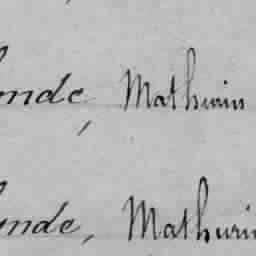 onde, Mathurin
onde, Mathurin